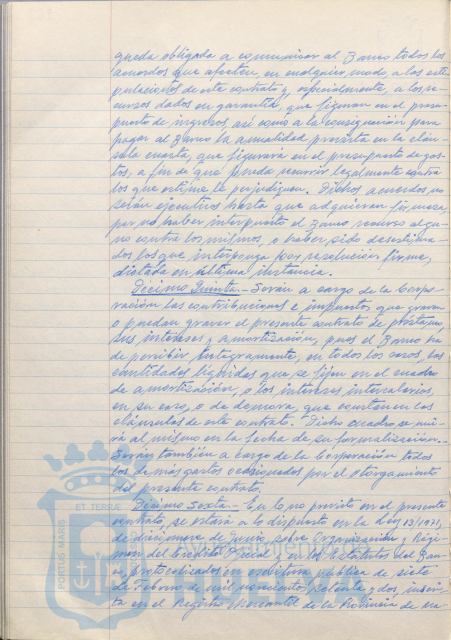 queda obligada a comunicar al Banco todos los
acuerdos que afecten, en cualquier modo, a las esti-
pulaciones de este contrato y especialmente, a los re-
cursos dados en garantía, que figuran en el presu-
puesto de ingresos, así como a la consignación para
pagar al Banco la anualidad prevista en la cláu-
sula cuarta, que figurará en el presupuesto de gas-
tos, a fin de que pueda recurrir legalmente contra
los que estime le perjudiquen. Dichos acuerdos no
serán ejecutivos hasta que adquieran firmeza,
por no haber interpuesto el Banco recurso algu-
no contra los mismos, o haber sido desestima-
dos los que interponga por resolución firme,
dictada en última instancia.
Décimo Quinta.- Serán a cargo de la Corpo-
ración las contribuciones e impuestos que graven
o puedan gravar el presente contrato de préstamo,
sus intereses y amortización, pues el Banco ha
de percibir íntegramente, en todos los casos, las
cantidades líquidas que se fijen en el cuadro
de amortización, o los intereses intercalarios,
en su caso, o de demora, que constan en las
cláusulas de este contrato. Dicho cuadro se uni-
rá al mismo en la fecha de su formalización.-
Serán también a cargo de la Corporación todos
los demás gastos ocasionados por el otorgamiento
del presente contrato.
Décimo Sexta.- En lo no previsto en el presente
contrato, se estará a lo dispuesto en la Ley 13/1971,
de diecinueve de Junio, sobre Organización y Régi-
men del Crédito Oficial y en los Estatutos del Ban-
co, protocolizados en escritura pública de siete
de Febrero de mil novecientos setenta y dos, inscri-
ta en el Registro Mercantil de la Provincia de Ma-
ET TERRAE
PORTUS MARIS